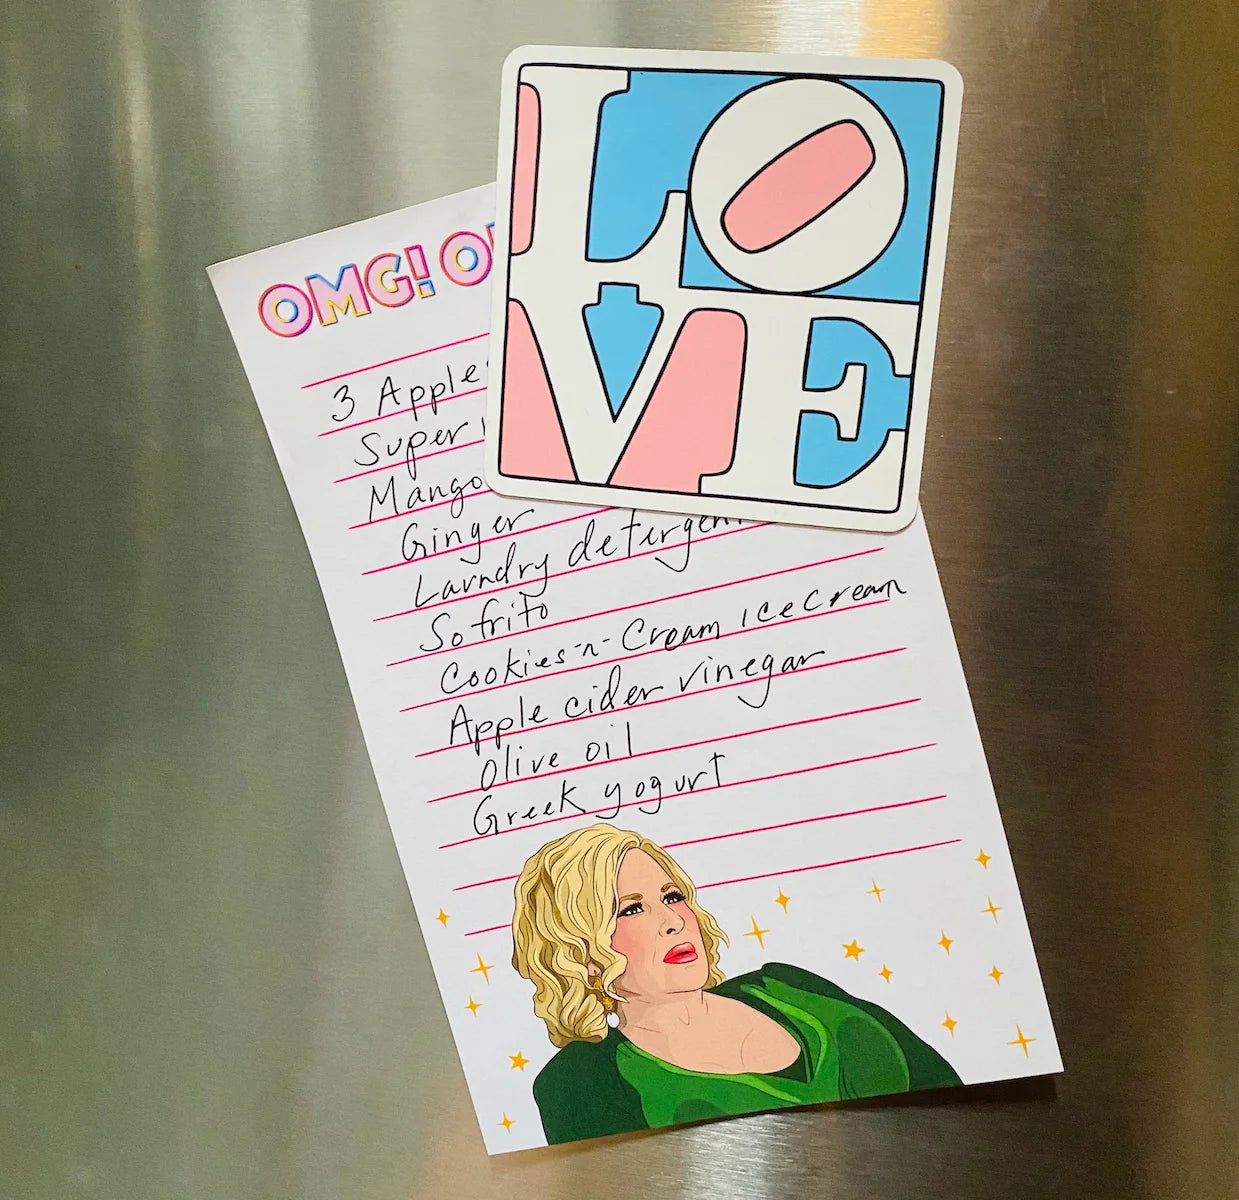 LOVE
OMG!
3 Apples
Super
Mango
Ginger
Laundry detergent
Sofrito
Cookies-n-Cream ice cream
Apple cider vinegar
Olive oil
Greek yogurt